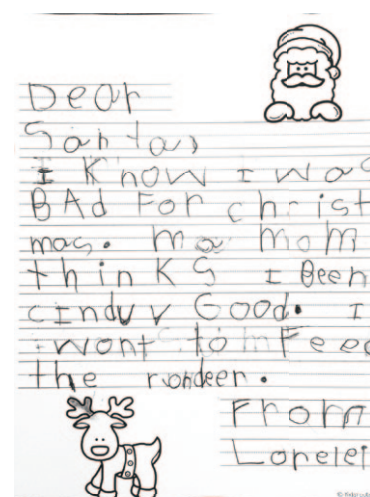 Dear
Santa,
I Know I was
BAd For christ
mas. ma moM
thinKS I Been
cinduv Good. I
wont to Feed
the rondeer.
From
Lorelei